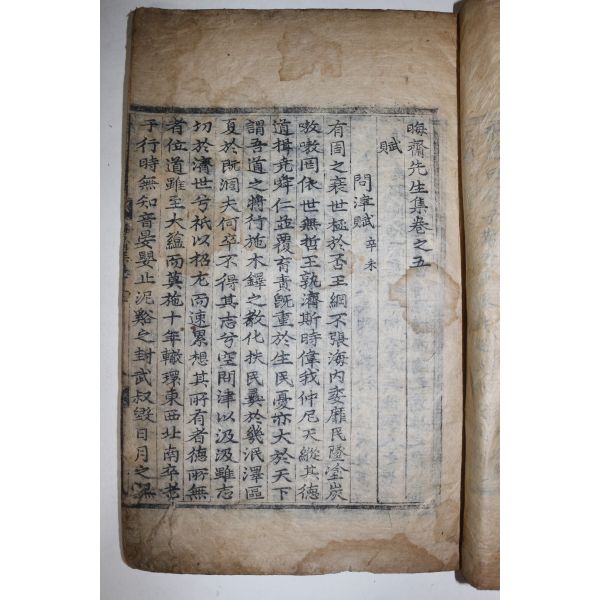 晦齋先生集卷之五
賦
問津賦 辛未
有周之衰世極於否王綱不張海內委靡民墜塗炭
嗷嗷罔依世無哲王孰濟斯時偉我仲尼天縱其德
道揖堯舜仁並覆育責旣重於生民憂亦大於天下
謂吾道之將行施木鐸之敎化扶民彝於幾泯澤區
夏於旣涸夫何卒不得其志兮空問津以汲汲雖志
切於濟世兮祇以招尤而速累想其所有者德所無
者位道雖至大蘊而莫施十年轍環東西北南卒老
于行時無知音晏嬰止泥谿之封武叔毁日月之